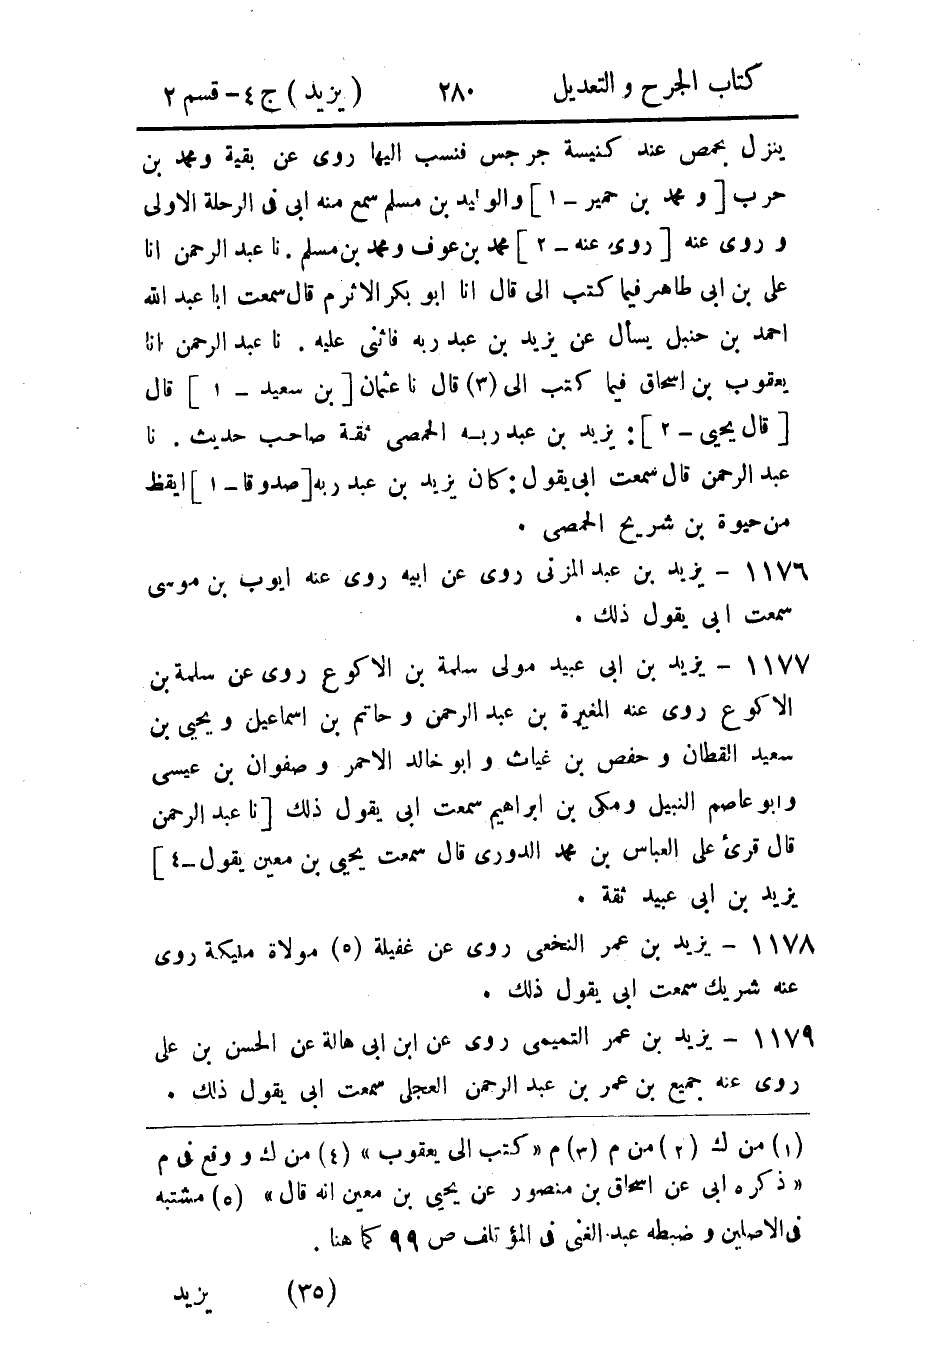 كتاب الجرح و التعديل ٢٨٠ (يزيد) ج ٤ - قسم ٢
ينزل بحمص عند كنيسة جرجس فنسب اليها روى عن بقية ومحمد بن
حرب [و محمد بن حمير - ١] والوليد بن مسلم سمع منه ابى فى الرحلة الاولى
و روى عنه [روى عنه - ٢] محمد بن عوف ومحمد بن مسلم . نا عبد الرحمن انا
على بن ابى طاهر فيما كتب الى قال انا ابو بكر الاثرم قال سمعت ابا عبد الله
احمد بن حنبل يسأل عن يزيد بن عبد ربه فاثنى عليه . نا عبد الرحمن انا
يعقوب بن اسحاق فيما كتب الى (٣) قال نا عثمان [بن سعيد - ١] قال
[قال يحيى - ٢] : يزيد بن عبد ربه الحمصى ثقة صاحب حديث . نا
عبد الرحمن قال سمعت ابى يقول : كان يزيد بن عبد ربه [صدوقا - ١] ايقظ
من حيوة بن شريح الحمصى .
١١٧٦ - يزيد بن عبد المزنى روى عن ابيه روى عنه ايوب بن موسى
سمعت ابى يقول ذلك .
١١٧٧ - يزيد بن ابى عبيد مولى سلمة بن الاكوع روى عن سلمة بن
الاكوع روى عنه المغيرة بن عبد الرحمن و حاتم بن اسماعيل و يحيى بن
سعيد القطان و حفص بن غياث و ابو خالد الاحمر و صفوان بن عيسى
وابو عاصم النبيل ومكى بن ابراهيم سمعت ابى يقول ذلك [نا عبد الرحمن
قال قرئ على العباس بن محمد الدورى قال سمعت يحيى بن معين يقول - ٤]
يزيد بن ابى عبيد ثقة .
١١٧٨ - يزيد بن عمر النخعى روى عن غفيلة (٥) مولاة مليكة روى
عنه شريك سمعت ابى يقول ذلك .
١١٧٩ - يزيد بن عمر التميمى روى عن ابن ابى هالة عن الحسن بن على
روى عنه جميع بن عمر بن عبد الرحمن العجلى سمعت ابى يقول ذلك .
(١) من ك (٢) من م (٣) م «كتب الى يعقوب» (٤) من ك و وقع فى م
«ذكره ابى عن اسحاق بن منصور عن يحيى بن معين انه قال» (٥) مشتبه
فى الاصلين و ضبطه عبد الغنى فى المؤتلف ص ٩٩ كما هنا .
(٣٥) يزيد